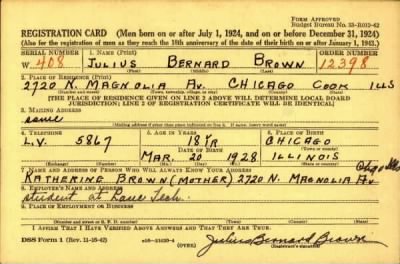 FORM APPROVED
Budget Bureau No. 33-R012-42
REGISTRATION CARD (Men born on or after July 1, 1924, and on or before December 31, 1924)
(Also for the registration of men as they reach the 18th anniversary of the date of their birth on or after January 1, 1943.)
SERIAL NUMBER
1. NAME (Print)
ORDER NUMBER
W 408
JULIUS BERNARD BROWN
12398
(First) (Middle) (Last)
2. PLACE OF RESIDENCE (Print)
2720 N. MAGNOLIA AV. CHICAGO COOK ILLS
(Number and street) (Town, township, village, or city) (County) (State)
[THE PLACE OF RESIDENCE GIVEN ON LINE 2 ABOVE WILL DETERMINE LOCAL BOARD
JURISDICTION; LINE 2 OF REGISTRATION CERTIFICATE WILL BE IDENTICAL]
3. MAILING ADDRESS
same
[Mailing address if other than place indicated on line 2. If same, insert word same]
4. TELEPHONE
5. AGE IN YEARS
6. PLACE OF BIRTH
L.V. 5867
18 YR
CHICAGO
DATE OF BIRTH
(Town or county)
MAR. 20 1928
ILLINOIS
(Exchange) (Number)
(Mo.) (Day) (Yr.)
(State or country)
7. NAME AND ADDRESS OF PERSON WHO WILL ALWAYS KNOW YOUR ADDRESS
KATHERINE BROWN (MOTHER) 2720 N. MAGNOLIA AV
8. EMPLOYER'S NAME AND ADDRESS
student at Lane Tech.
9. PLACE OF EMPLOYMENT OR BUSINESS
(Number and street or R. F. D. number) (Town) (County) (State)
I AFFIRM THAT I HAVE VERIFIED ABOVE ANSWERS AND THAT THEY ARE TRUE.
DSS Form 1 (Rev. 11-16-42)
(OVER)
Julius Bernard Brown
(Registrant's signature)